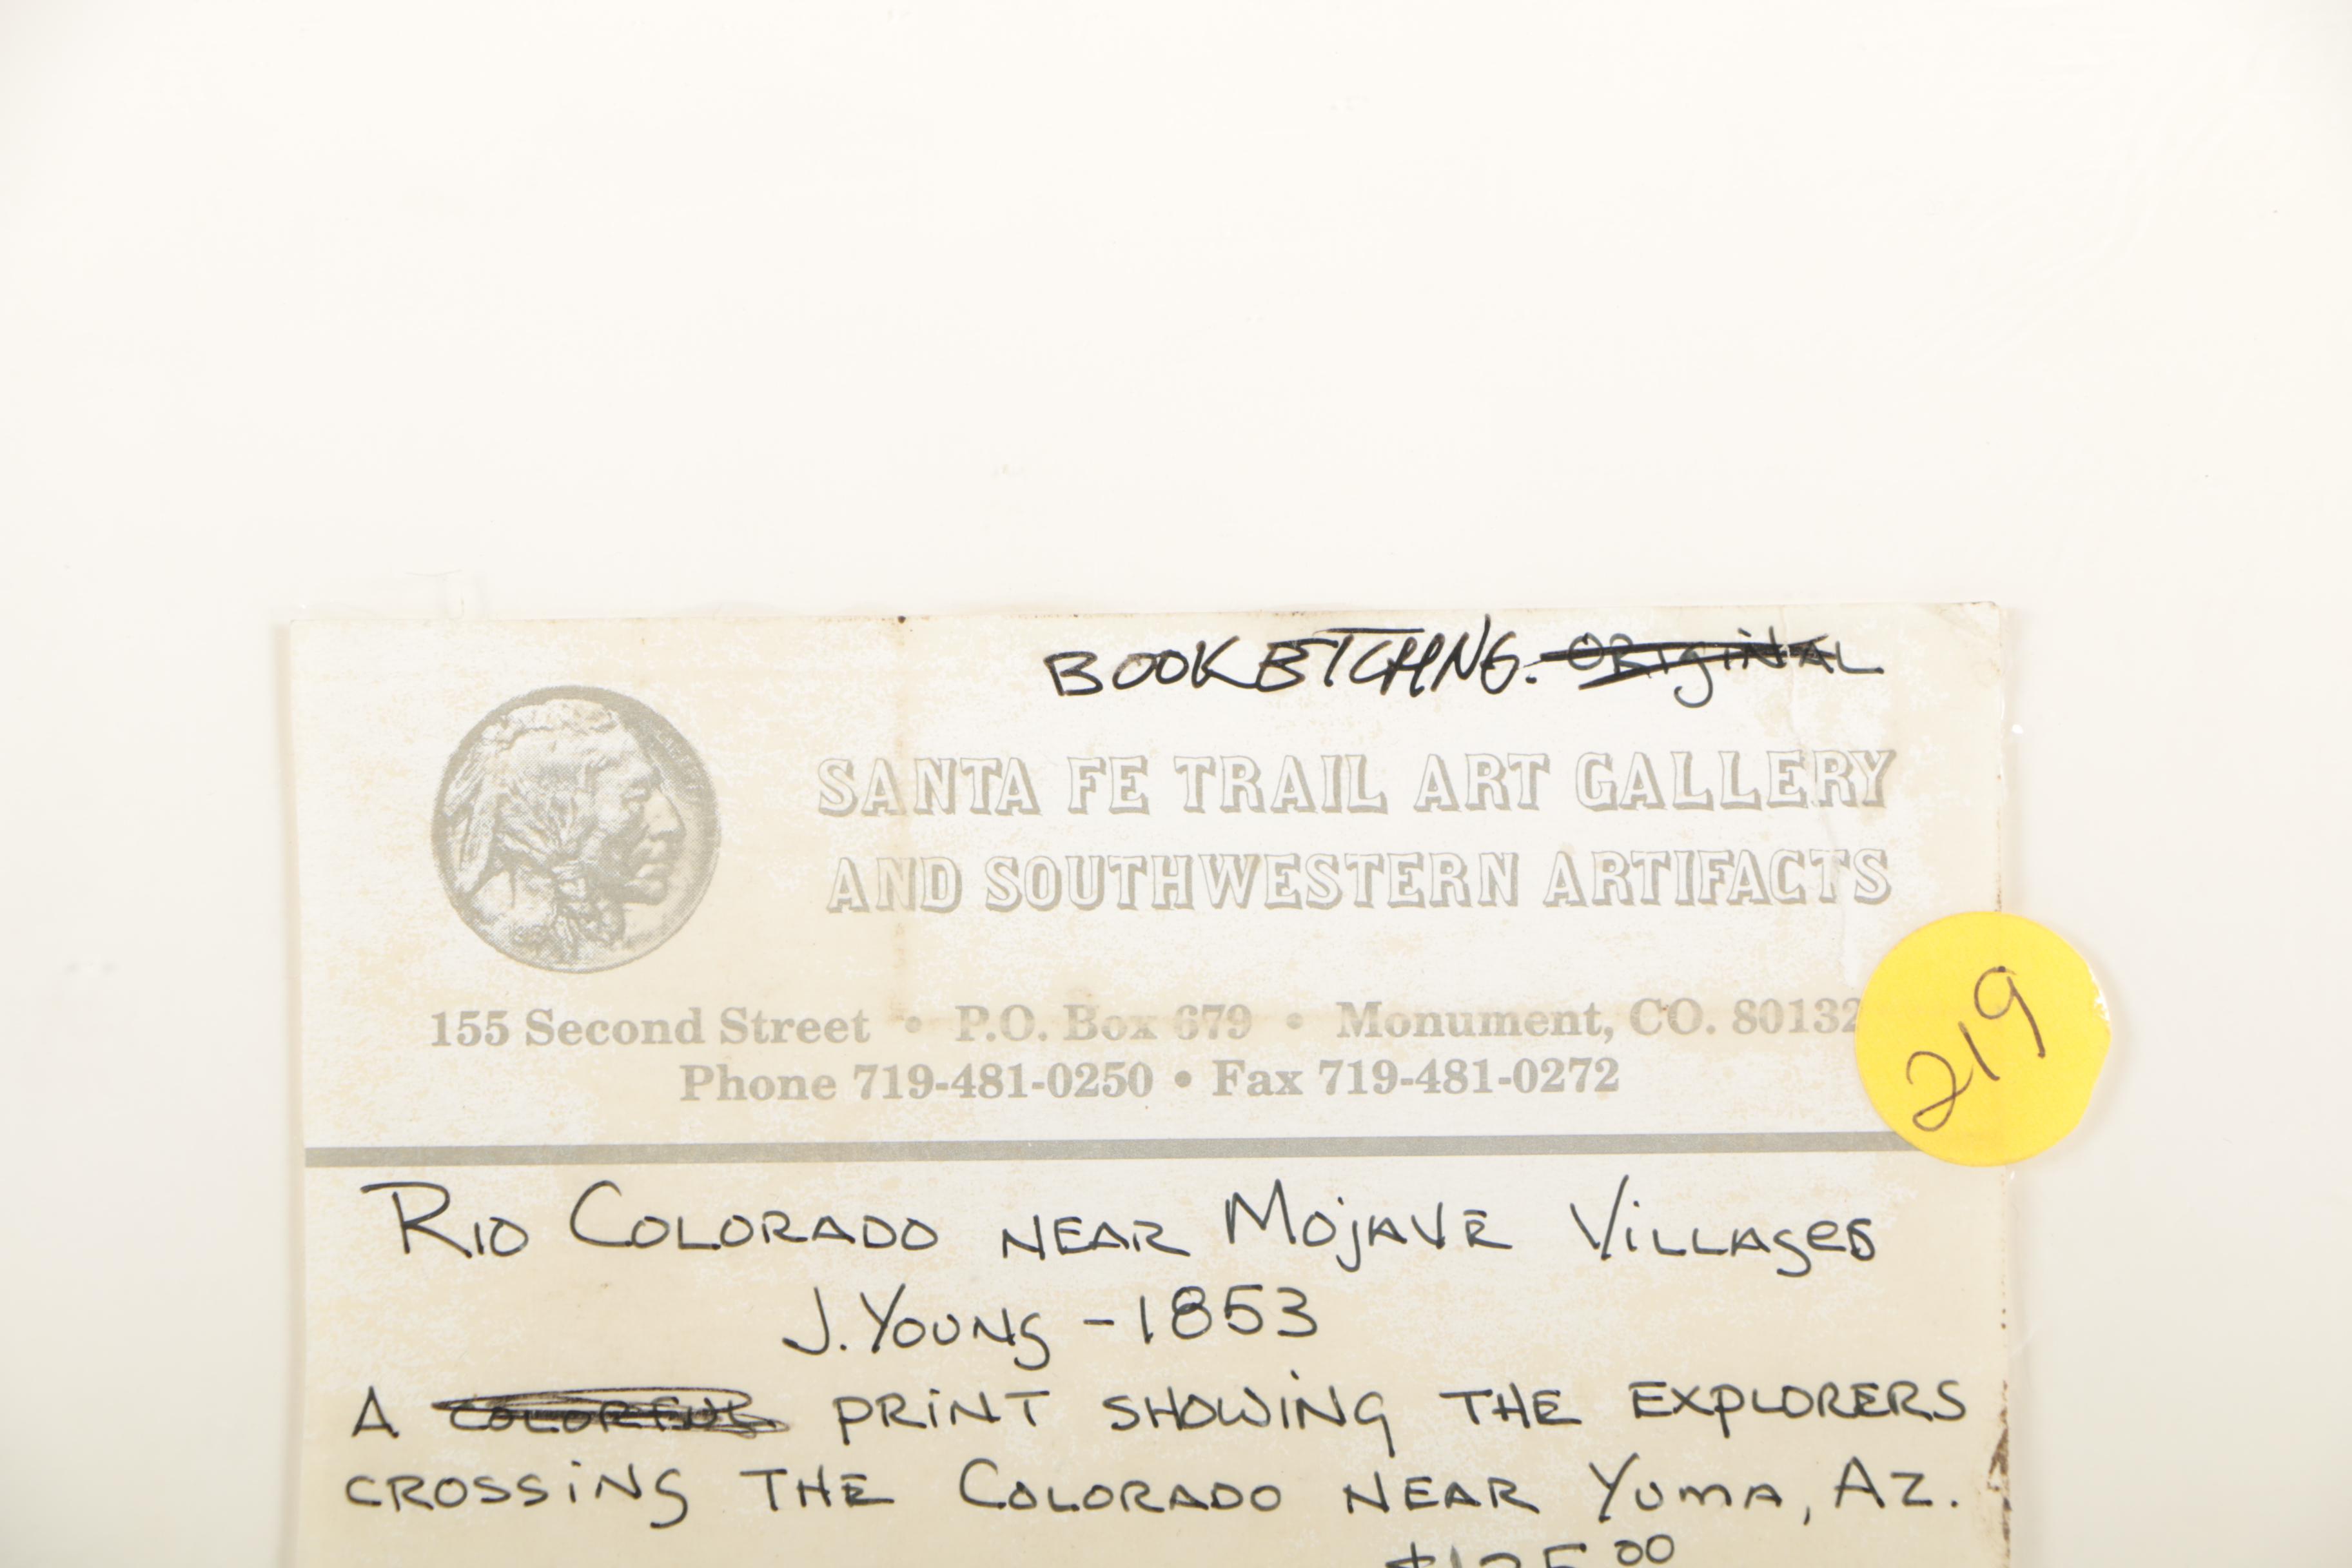 BOOK ETCHNG. ORIGINAL
SANTA FE TRAIL ART GALLERY
AND SOUTHWESTERN ARTIFACTS
155 Second Street • P.O. Box 679 • Monument, CO. 80132
Phone 719-481-0250 • Fax 719-481-0272
219
RIO COLORADO NEAR MOJAVE VILLAGES
J. YOUNG - 1853
A COLORFUL PRINT SHOWING THE EXPLORERS
CROSSING THE COLORADO NEAR YUMA, AZ.
$125.00